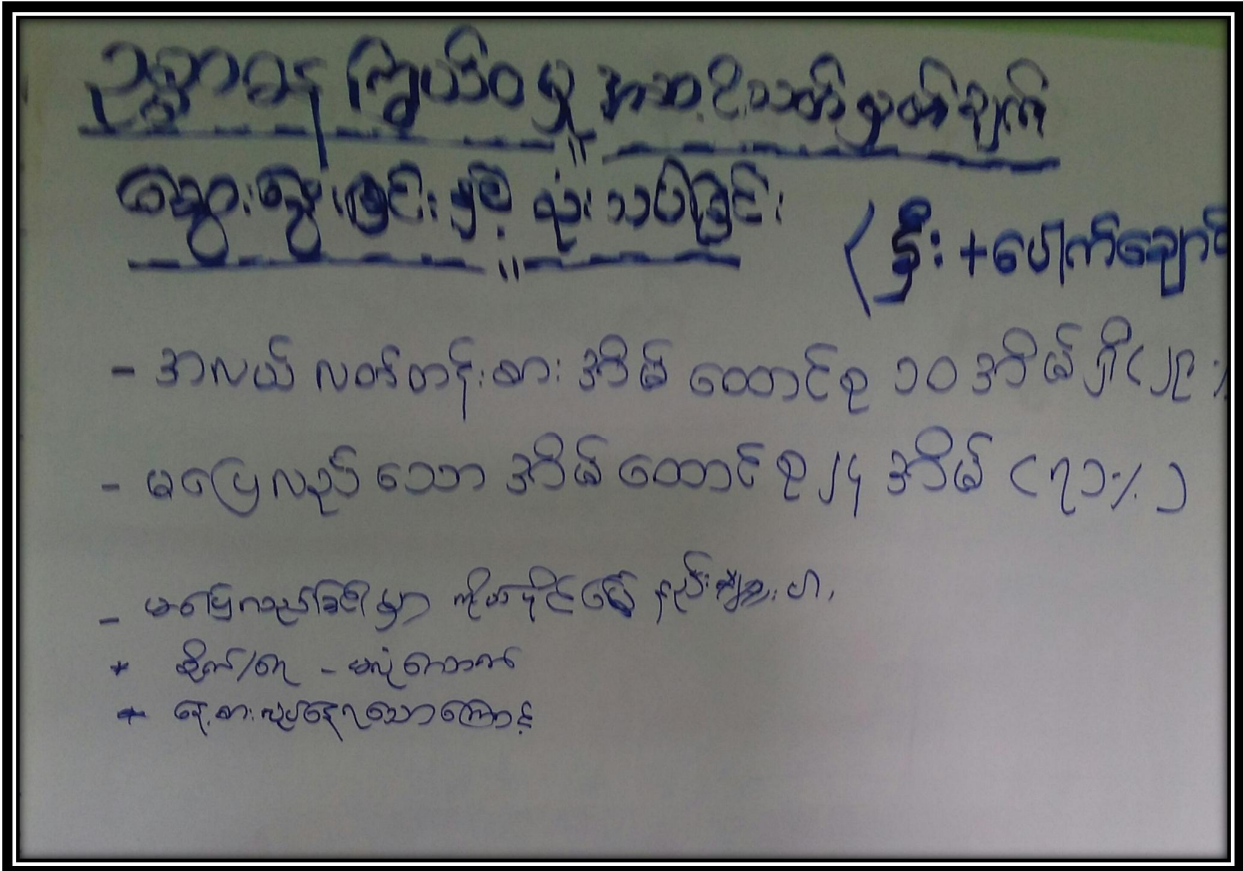 ဥစ္စာဓန ကြွယ်ဝမှု အဆင့်သတ်မှတ်ချက်
ဆွေးနွေးခြင်းနှင့် သုံးသပ်ခြင်း
(နှီး + ပေါက်ချောင်
- အလယ်လတ်တန်းစား အိမ်ထောင်စု ၁၀ အိမ်ရှိ (၂၉ %
- မပြေလည်သော အိမ်ထောင်စု ၂၄ အိမ် (၇၁%)
- မပြေလည်ခြင်းမှာ ကိုယ်ပိုင်မြေ နည်းပါး၊
* စိုက်/မွေး - မလုံလောက်
* နေ့စားလုပ်နေရသောကြောင့်